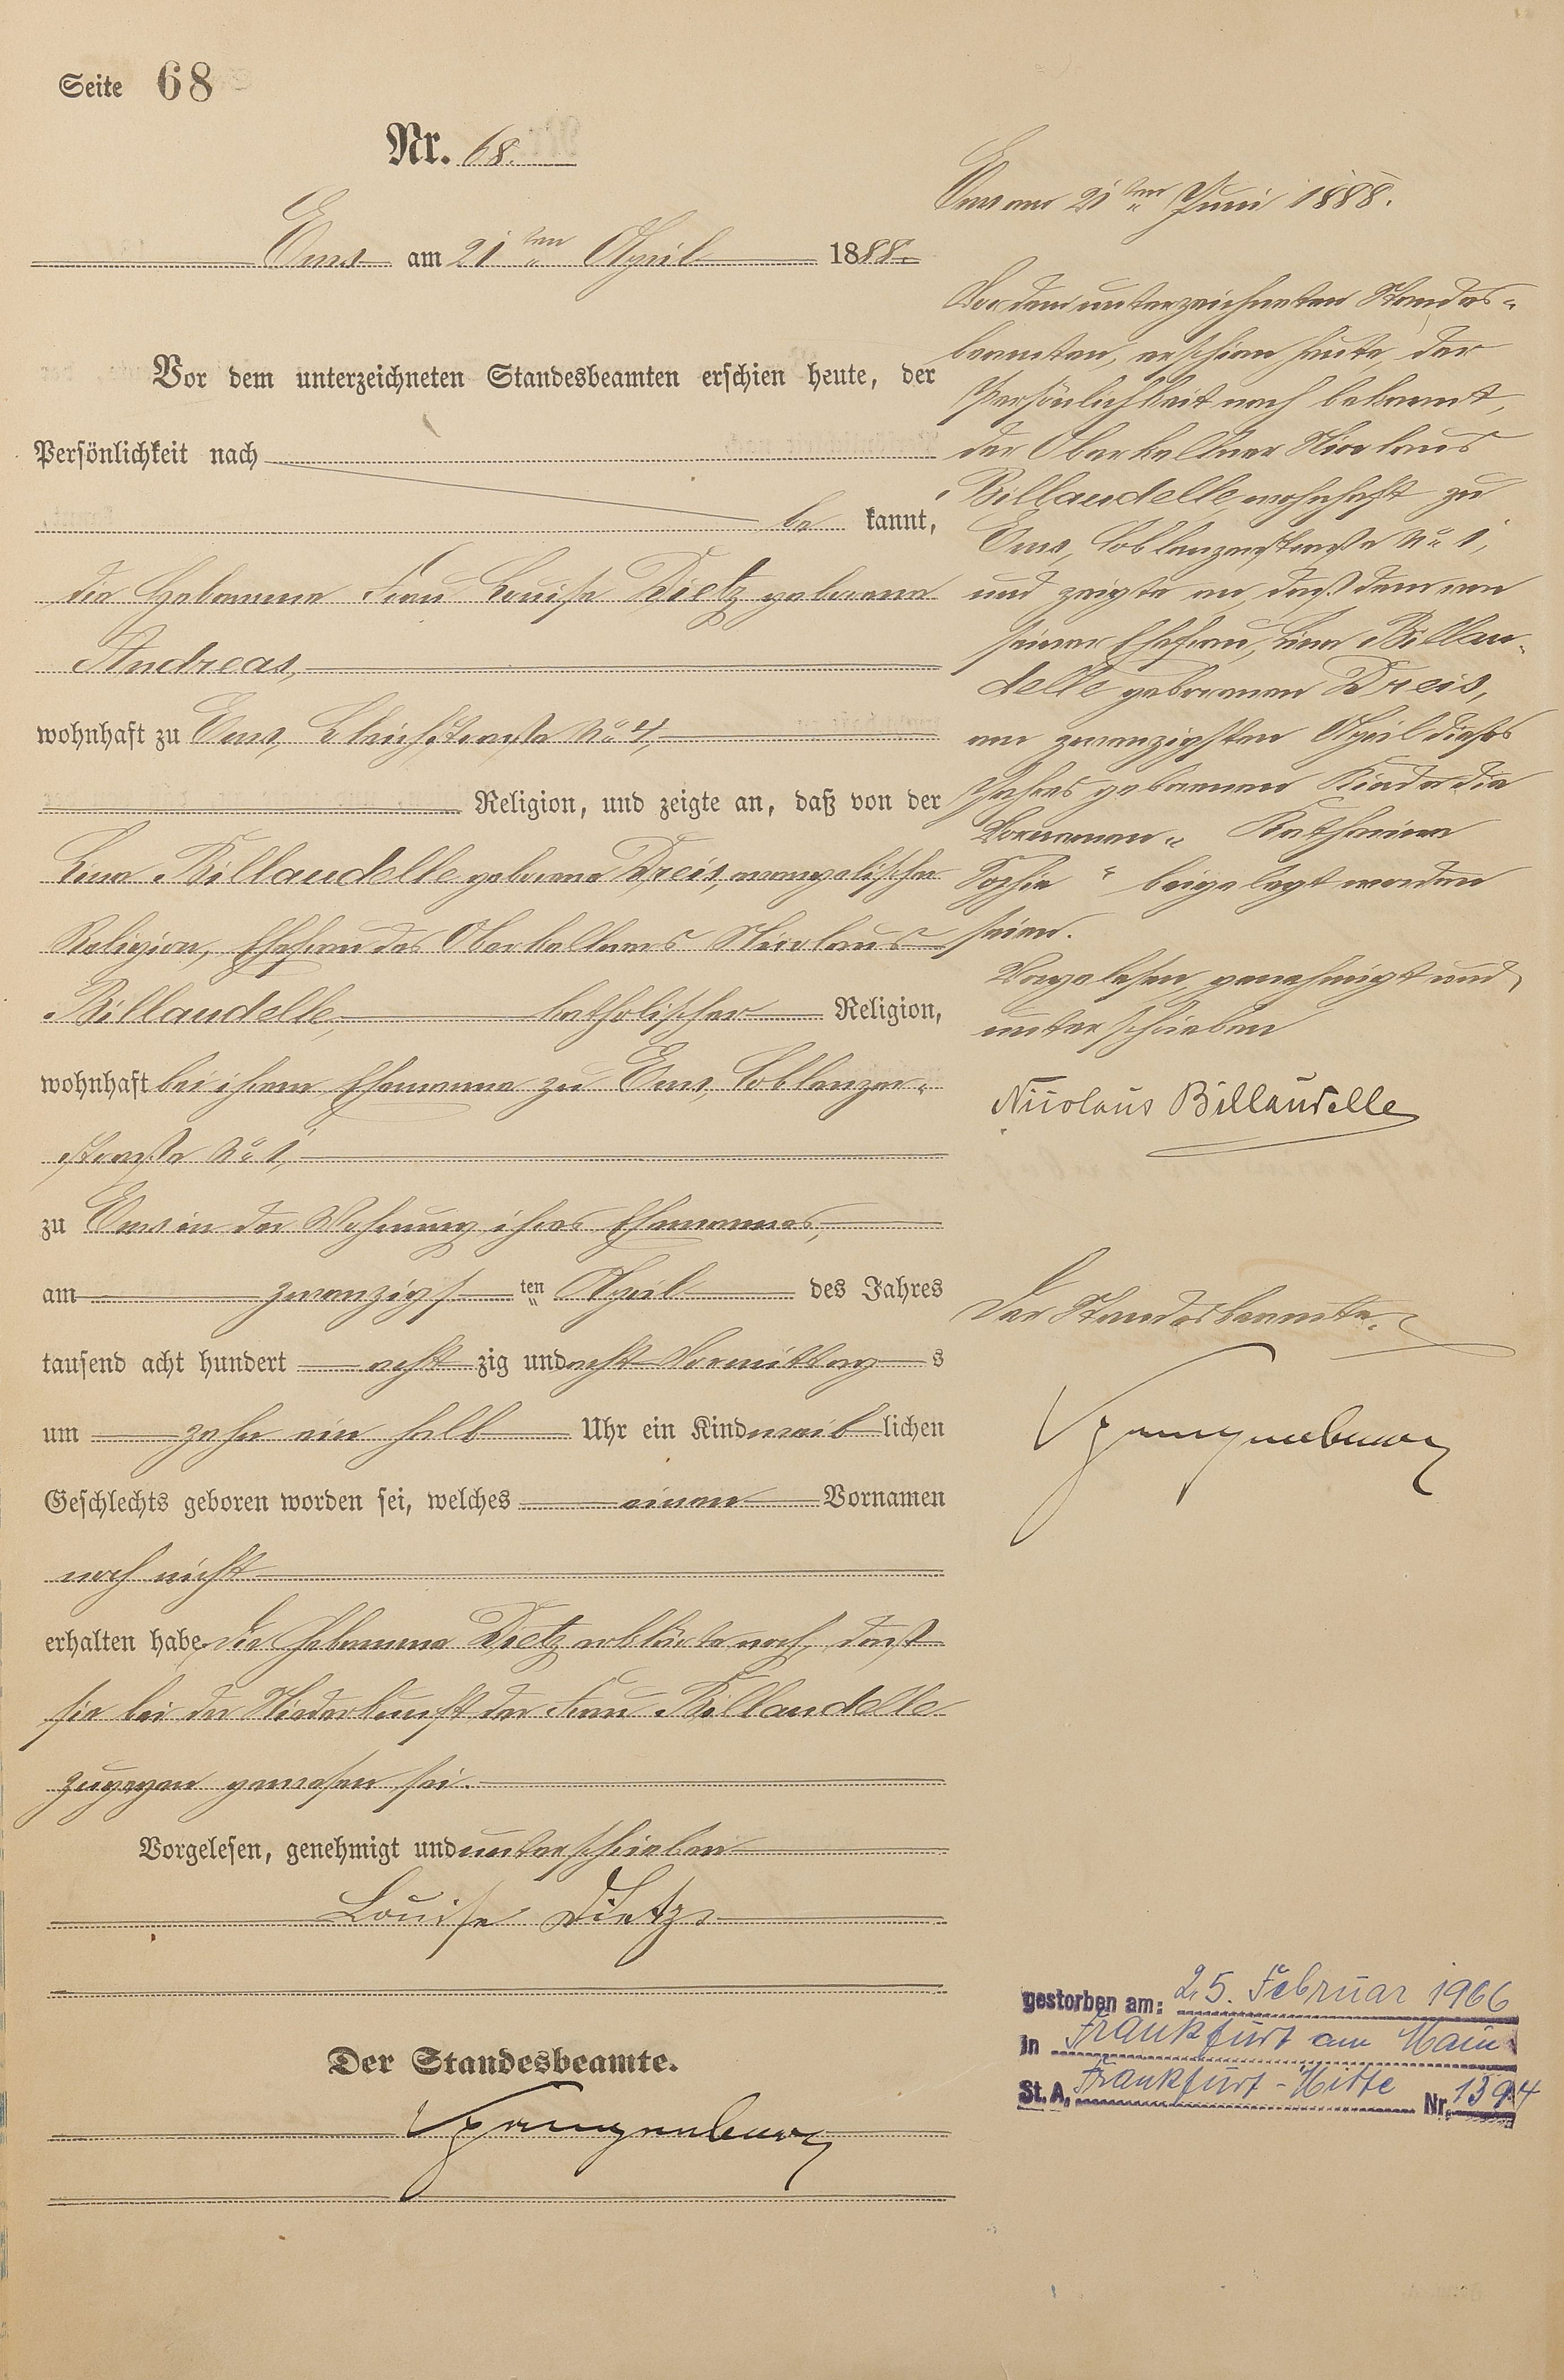 Seite 68
Nr. 68.
Ems am 21ten April 1888.
Vor dem unterzeichneten Standesbeamten erschien heute, der
Persönlichkeit nach
be kannt,
die Hebamme Frau Louise Dietz geborene
Andreas,
wohnhaft zu Ems, Bleichstraße No 4,
Religion, und zeigte an, daß von der
Lina Billaudelle geborene Dreis, evangelischer
Religion, Ehefrau des Oberkellners Nicolaus
Billaudelle, katholischer Religion,
wohnhaft bei ihrem Ehemanne zu Ems, Coblenzer-
straße No 1,
zu Ems in der Wohnung ihres Ehemannes,
am zwanzigsten April des Jahres
tausend acht hundert acht zig und acht Vormittag s
um zehn ein halb Uhr ein Kind weib lichen
Geschlechts geboren worden sei, welches einen Vornamen
noch nicht
erhalten habe. Die Hebamme Dietz erklärte noch, daß
sie bei der Niederkunft der Frau Billaudelle
zugegen gewesen sei.
Vorgelesen, genehmigt und unterschrieben
Louise Dietz
Der Standesbeamte.
Ems am 21ten Juni 1888.
Vor dem unterzeichneten Standes-
beamten, erschien heute, der
Persönlichkeit nach bekannt,
der Oberkellner Nicolaus
Billaudelle, wohnhaft zu
Ems, Coblenzerstraße No 1,
und zeigte an, daß dem von
seiner Ehefrau, Lina Billau-
delle geborenen Dreis,
am zwanzigsten April dieses
Jahres geborenen Kinde die
Vornamen „Katharina
Sophie“ beigelegt worden
seien.
Vorgelesen, genehmigt und
unterschrieben
Nicolaus Billaudelle
Der Standesbeamte.
gestorben am: 25. Februar 1966
in Frankfurt am Main
St. A. Frankfurt-Mitte Nr. 1394